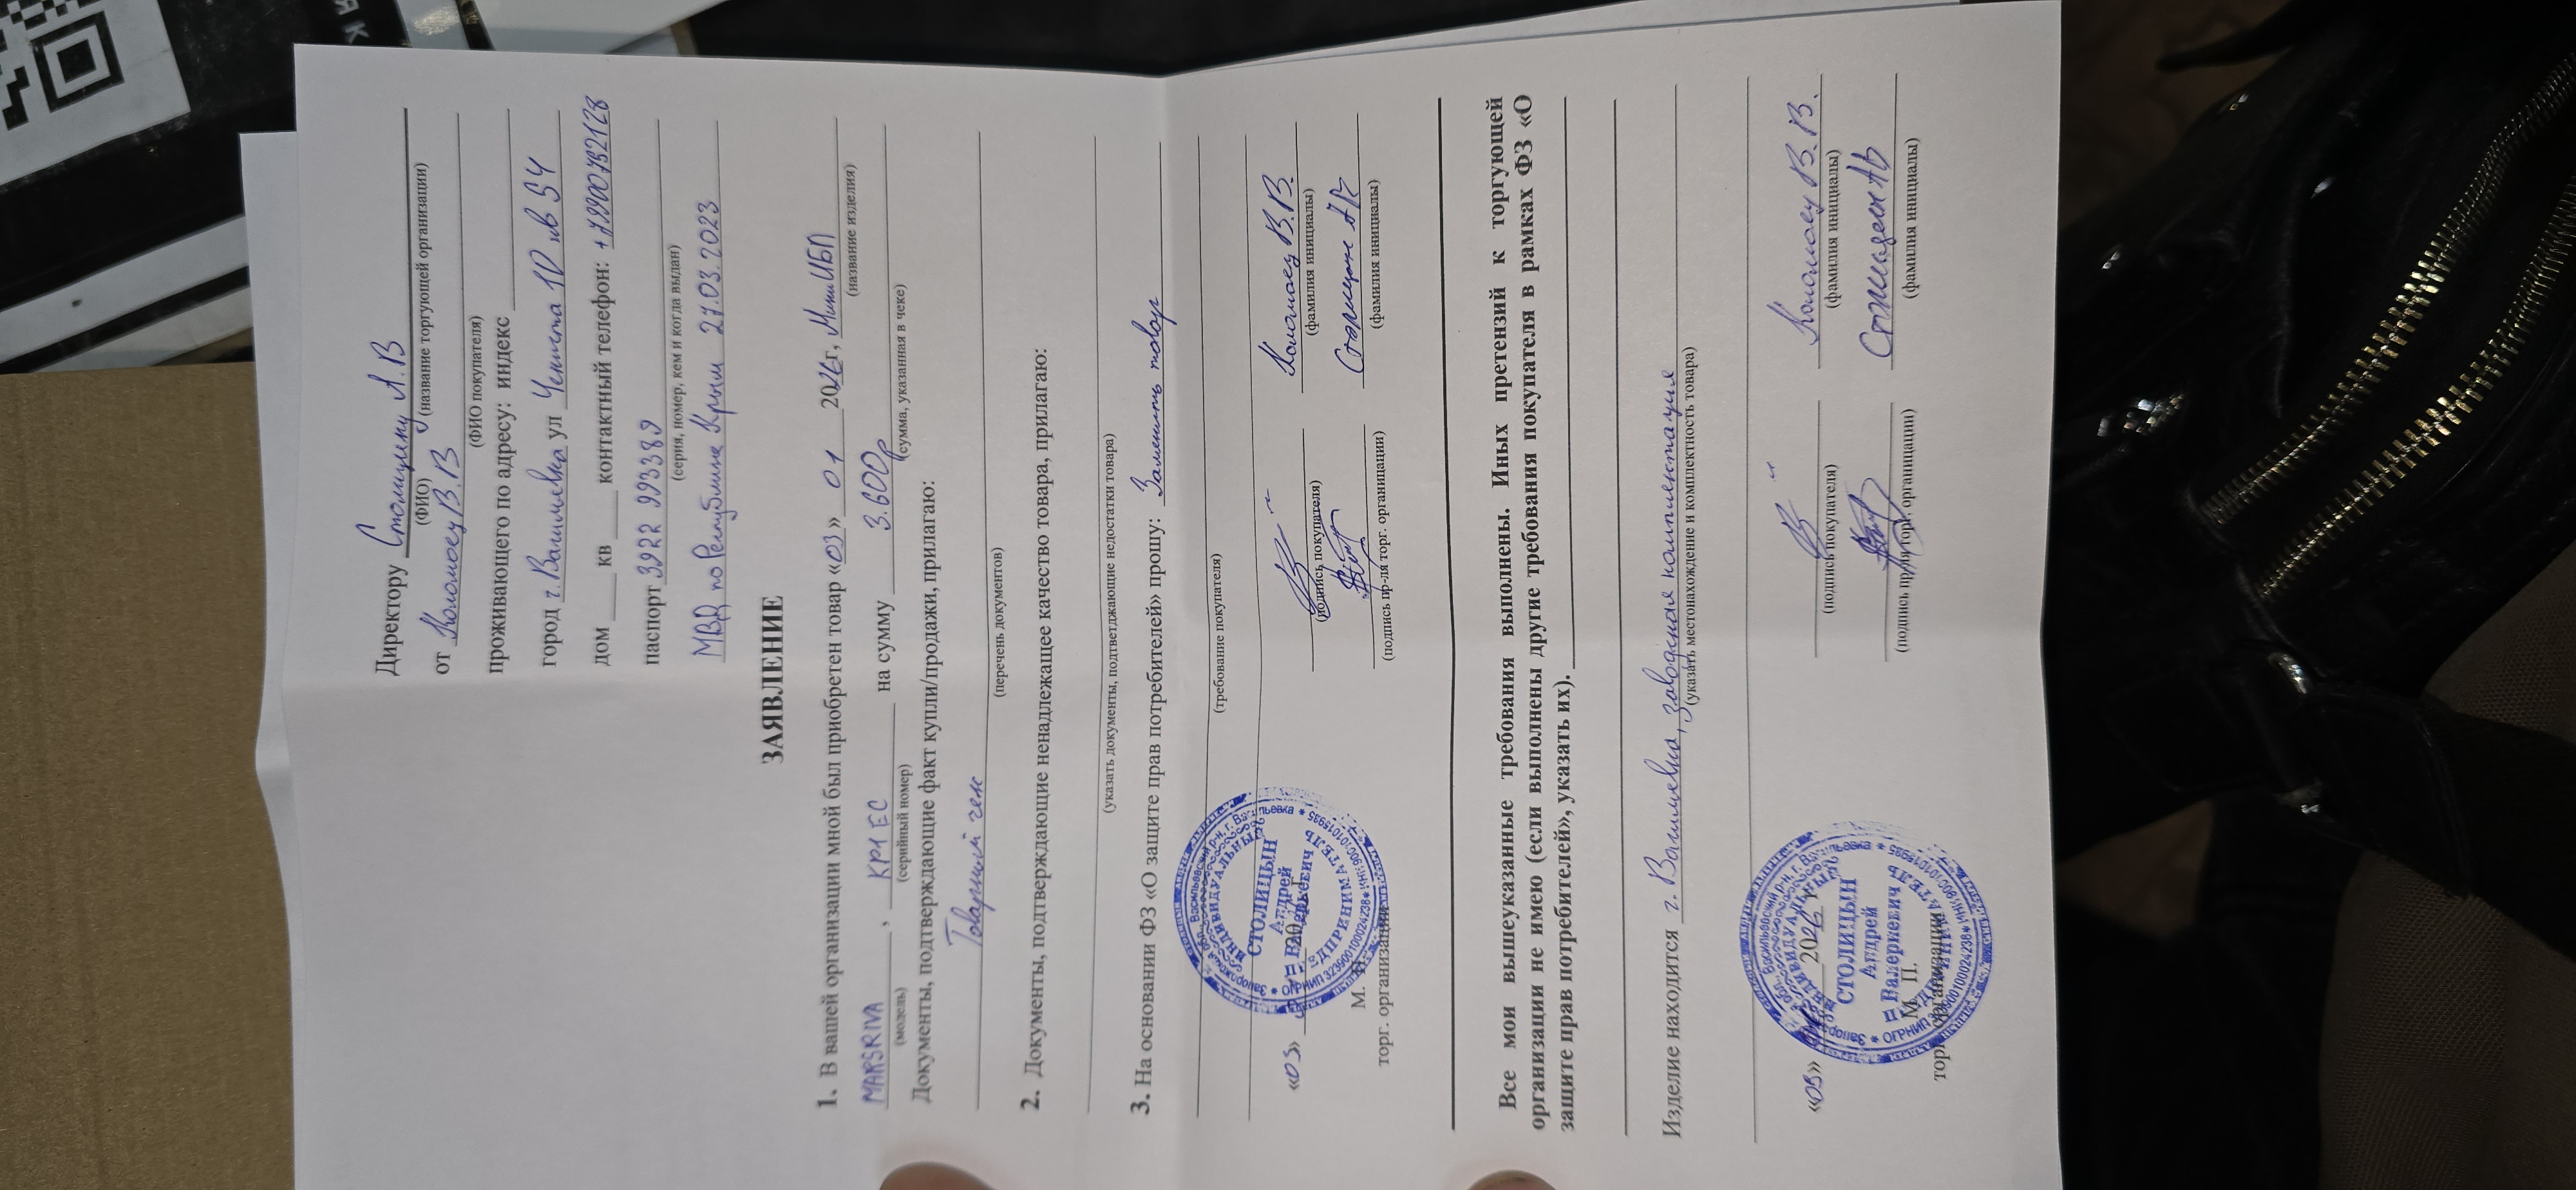 Директору Столицину А.В
(ФИО) (название торгующей организации)
от Коломоец В.В
(ФИО покупателя)
проживающего по адресу: индекс
город г. Васильевка ул Чекиста 10 кв 54
дом ____ кв ____ контактный телефон: +79900792128
паспорт 3922 993389
(серия, номер, кем и когда выдан)
МВД по Республике Крым 27.03.2023
ЗАЯВЛЕНИЕ
1. В вашей организации мной был приобретен товар «03» 01 2026г, Мини ИБП
(название изделия)
MARSRIVA, KP1 EC на сумму 3.600р
(модель) (серийный номер) (сумма, указанная в чеке)
Документы, подтверждающие факт купли/продажи, прилагаю:
Товарный чек
(перечень документов)
2. Документы, подтверждающие ненадлежащее качество товара, прилагаю:
(указать документы, подтветджающие недостатки товара)
3. На основании ФЗ «О защите прав потребителей» прошу: Заменить товар
(требование покупателя)
«03» 20 г. Коломоец В.В.
(подпись покупателя) (фамилия инициалы)
М. П. Столицин АВ
торг. организации (подпись пр-ля торг. органицации) (фамилия инициалы)
Запорожская обл., Васильевский р-н, г. Васильевка * ИНН 900101015935 * ОГРНИП 323900100024238 *
ИНДИВИДУАЛЬНЫЙ ПРЕДПРИНИМАТЕЛЬ
СТОЛИЦЫН
Андрей
Валерьевич
Все мои вышеуказанные требования выполнены. Иных претензий к торгующей
организации не имею (если выполнены другие требования покупателя в рамках ФЗ «О
защите прав потребителей», указать их).
Изделие находится г. Васильевка, заводская комплектация
(указать местонахождение и комплектность товара)
«03» 2026 Коломоец В.В.
(подпись покупателя) (фамилия инициалы)
М. П.
торг. организации (подпись пр-ля торг. органицации) (фамилия инициалы)
Запорожская обл., Васильевский р-н, г. Васильевка * ИНН 900101015935 * ОГРНИП 323900100024238 *
ИНДИВИДУАЛЬНЫЙ ПРЕДПРИНИМАТЕЛЬ
СТОЛИЦЫН
Андрей
Валериевич